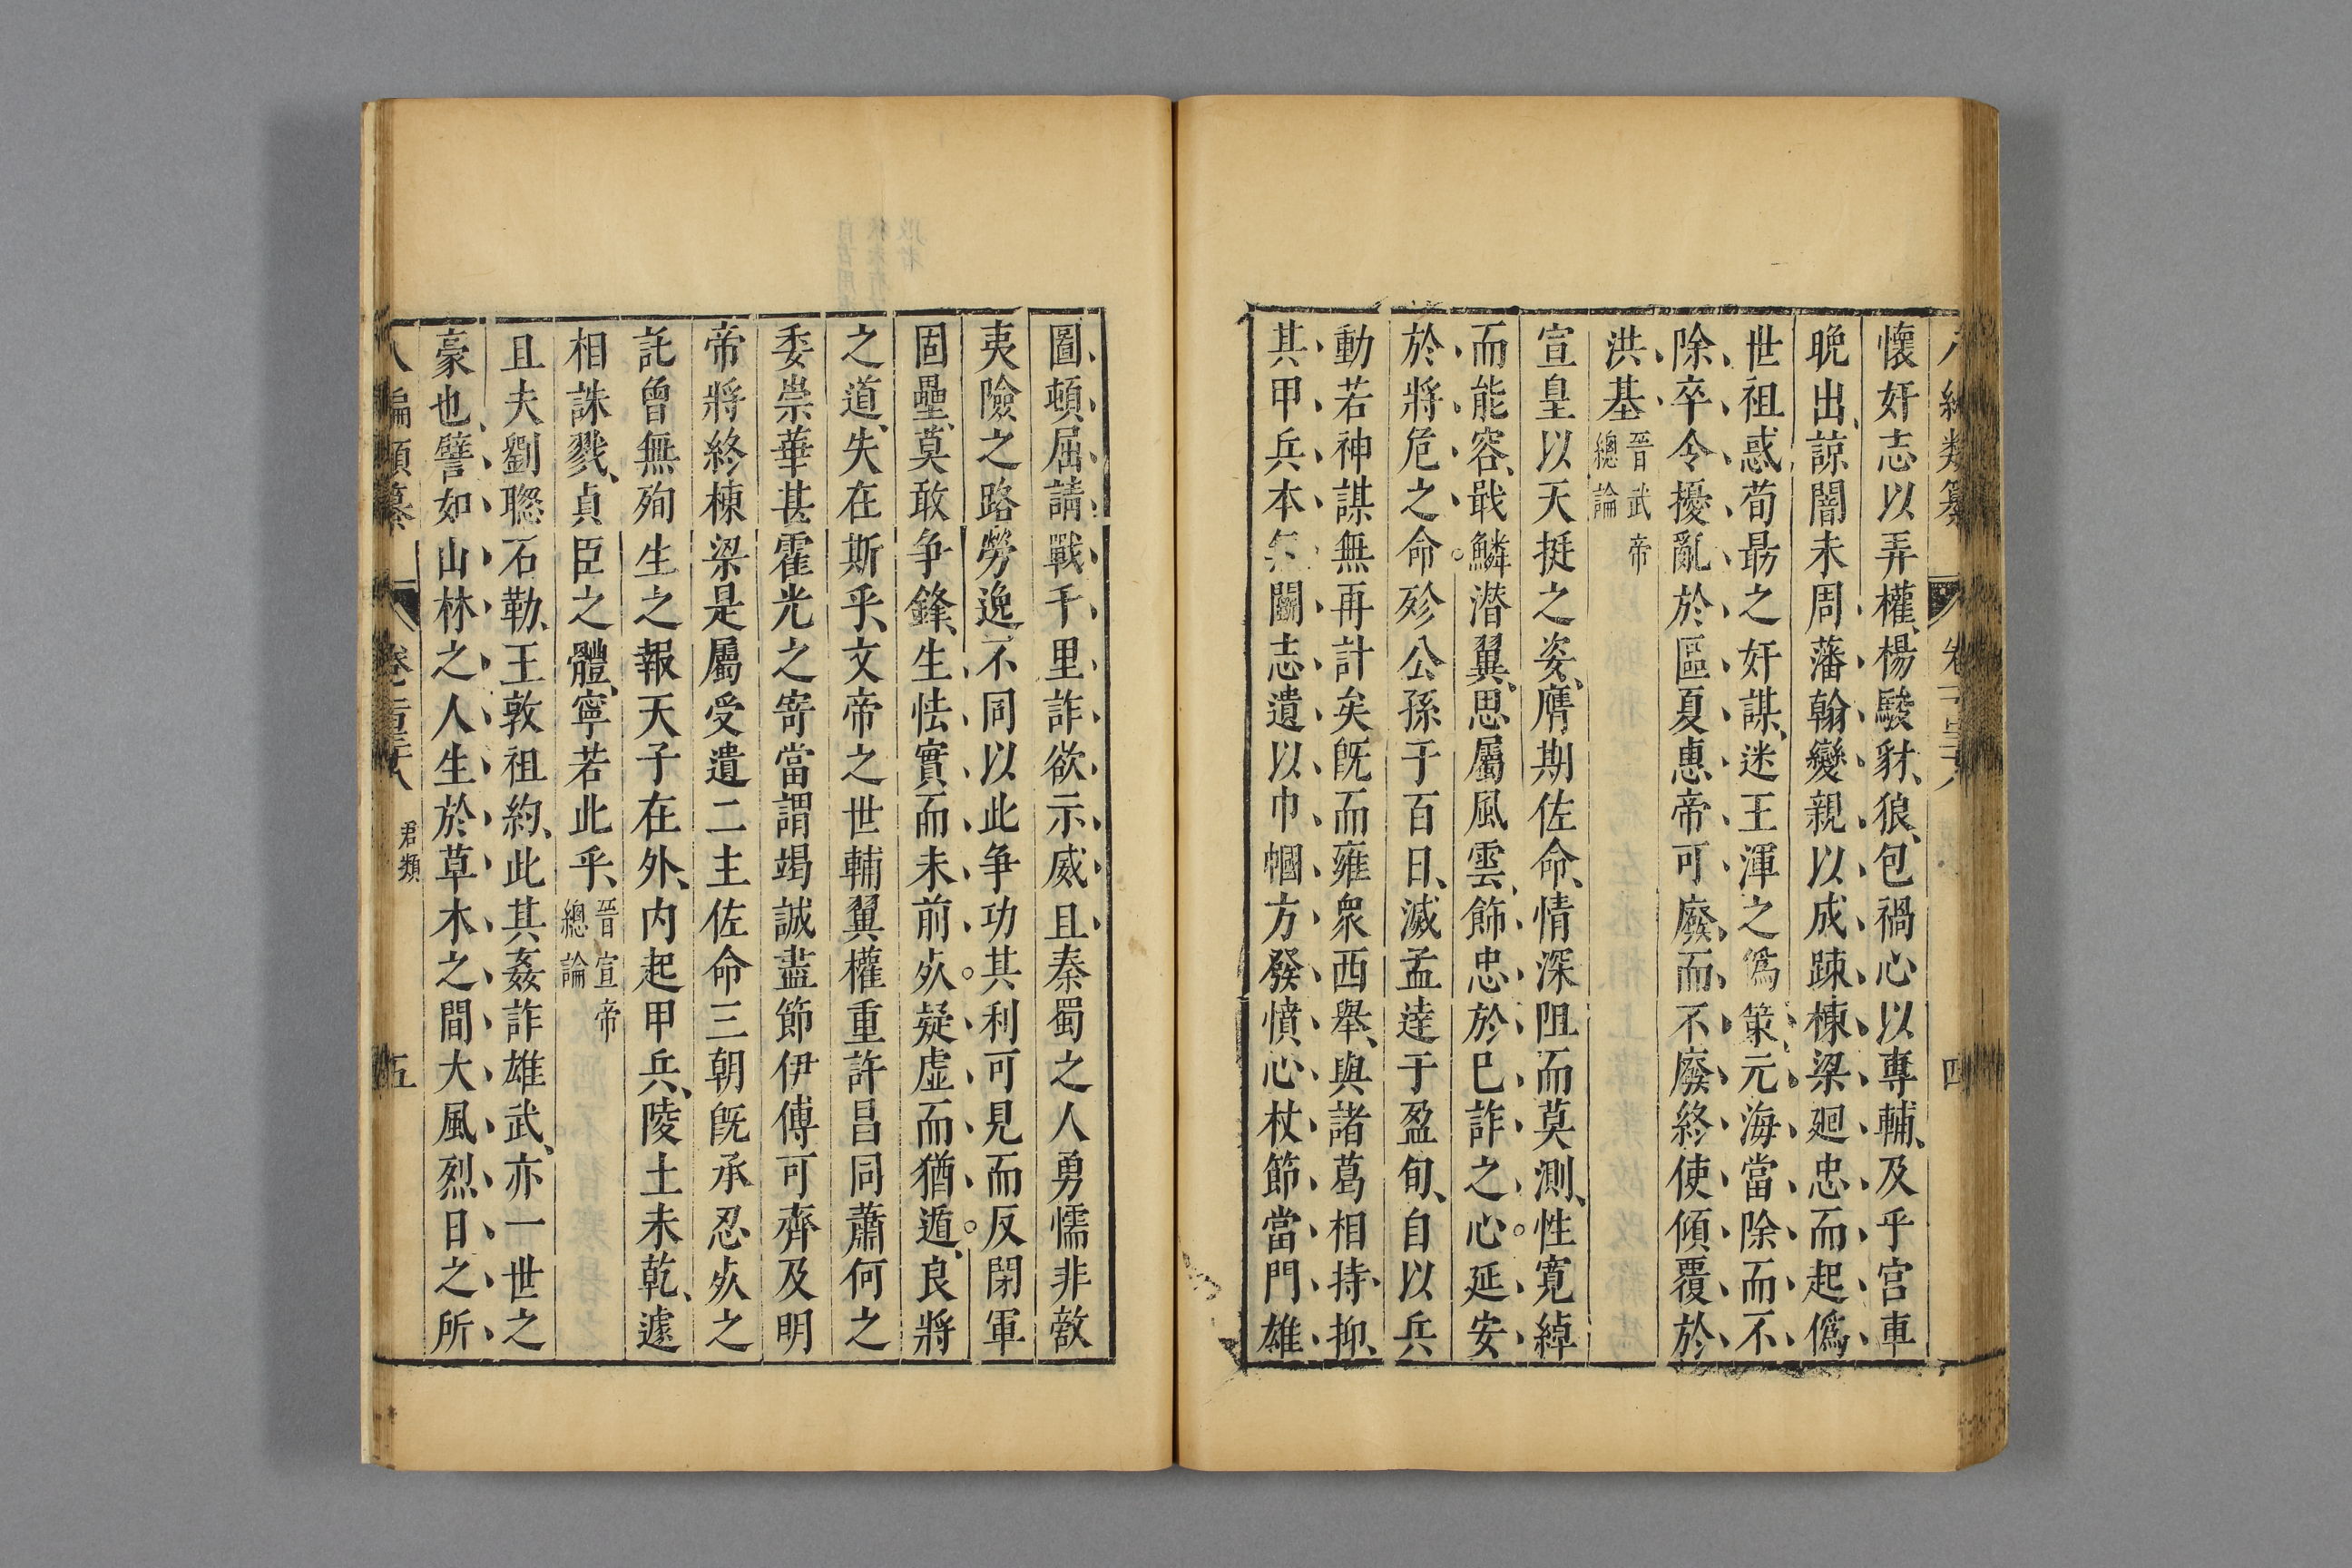 懷奸志以弄權楊駿豺狼包禍心以專輔及乎宮車
晚出諒闇未周藩翰變親以成踈棟梁廻忠而起僞
世祖惑荀勗之奸謀迷王渾之僞策元海當除而不
除卒令擾亂於區夏惠帝可廢而不廢終使傾覆於
洪基晉武帝總論
宣皇以天挺之姿膺期佐命情深阻而莫測性寬綽
而能容戢鱗潛翼思屬風雲飾忠於巳詐之心延安
於將危之命殄公孫于百日滅孟達于盈旬自以兵
動若神謀無再計矣旣而雍衆西舉與諸葛相持抑
其甲兵本無鬬志遺以巾幗方發憤心杖節當門雄
圖頓屈請戰千里詐欲示威且秦蜀之人勇懦非敵
夷險之路勞逸不同以此争功其利可見而反閉軍
固壘莫敢争鋒生怯實而未前死疑虛而猶遁良將
之道失在斯乎文帝之世輔翼權重許昌同蕭何之
委崇華甚霍光之寄當謂竭誠盡節伊傅可齊及明
帝將終棟梁是屬受遺二主佐命三朝旣承忍死之
託曾無殉生之報天子在外内起甲兵陵土未乾遽
相誅戮貞臣之體寧若此乎晉宣帝總論
且夫劉聰石勒王敦祖約此其姦詐雄武亦一世之
豪也譬如山林之人生於草木之間大風烈日之所
八編類纂 卷二百三十八 君類 五